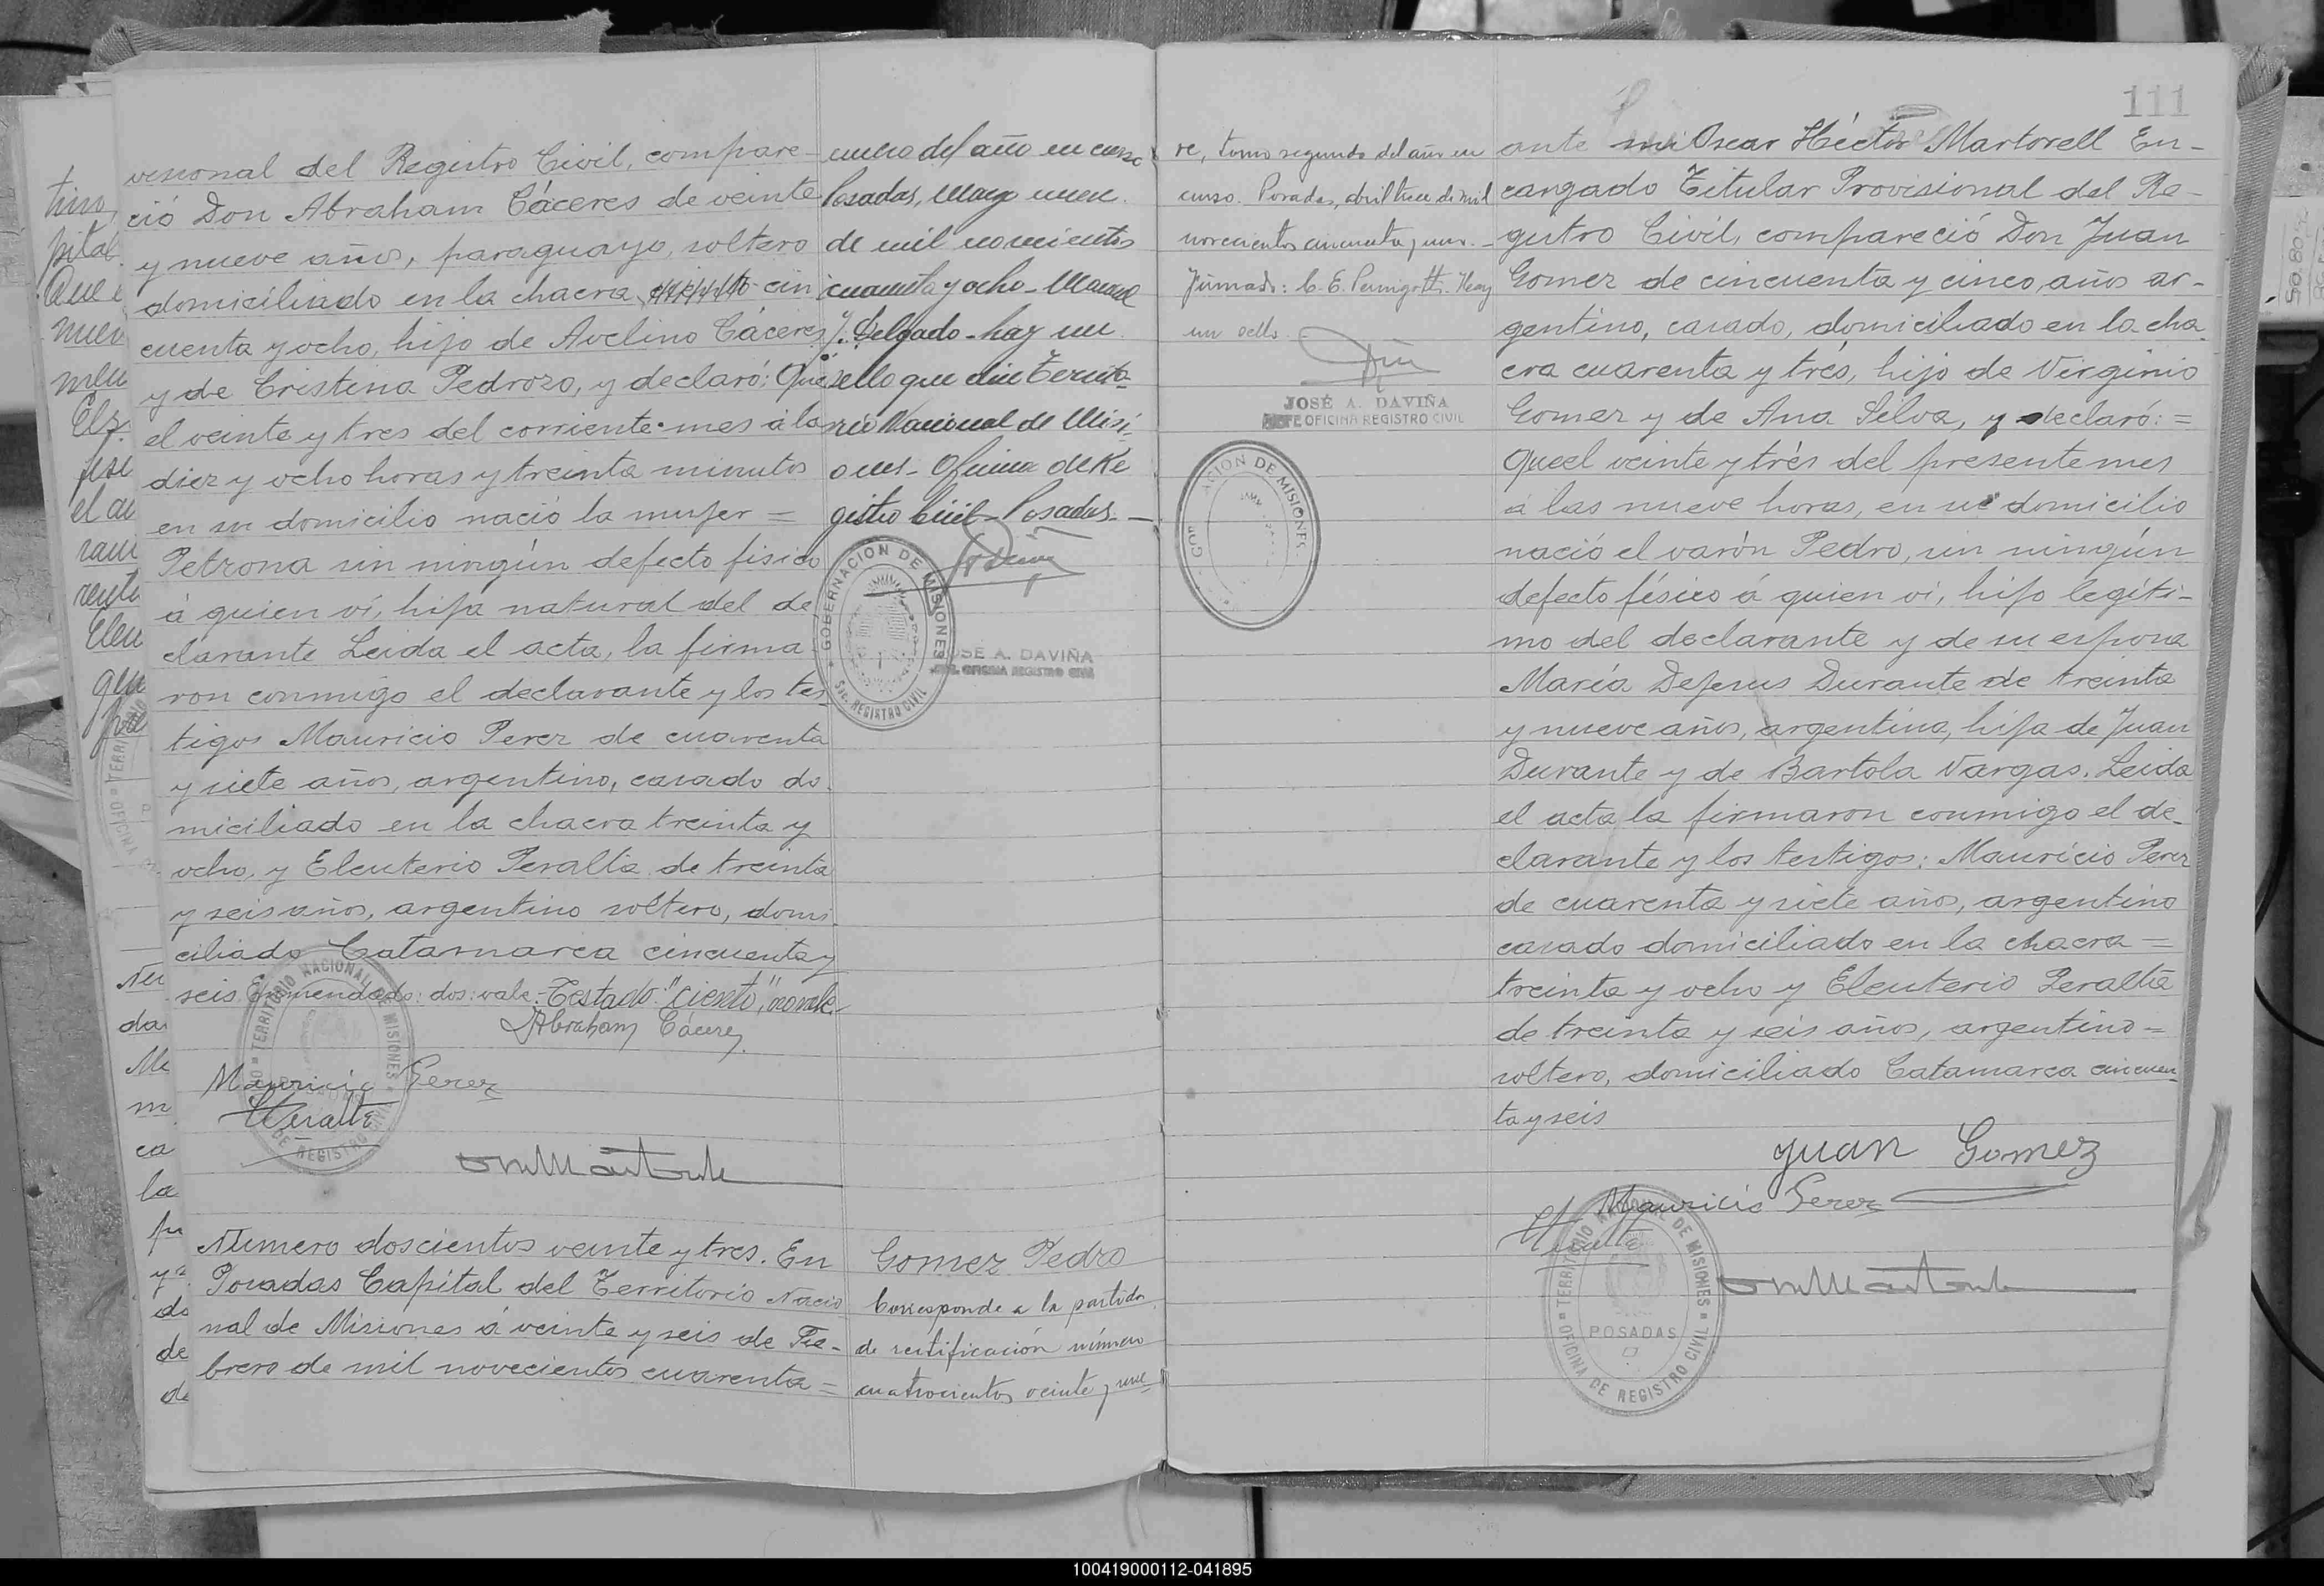 visional del Registro Civil, compare-
ció Don Abraham Cáceres de veinte
y nueve años, paraguayo, soltero
domiciliado en la chacra cin
cuenta y ocho, hijo de Avelino Cáceres
y de Cristina Pedrozo, y declaró: Que
el veinte y tres del corriente mes á la
diez y ocho horas y treinta minutos
en su domicilio nació la mujer =
Petrona sin ningún defecto fisico
á quien ví, hija natural del de
clarante Leida el acta, la firma
ron conmigo el declarante y los tes
tigos Mauricio Perez de cuarenta
y siete años, argentino, casado do.
miciliado en la chacra treinta y
ocho, y Eleuterio Peralta de treinta
y seis años, argentino soltero, domi
ciliado Catamarca cincuenta y
seis Enmendado: dos: vale.- Testado "ciento", no vale.-
Abraham Cáceres
Mauricio Perez
Numero doscientos veinte y tres. En
Posadas Capital del Territorio Nacio
nal de Misiones á veinte y seis de Fe-
brero de mil novecientos cuarenta =
del año en curso
Posadas, Mayo
de mil novecientos
cincuenta y ocho - Manuel
J. Delgado - hay un
sello que dice Territo-
rio Nacional de Misi-
ones - Oficina de Re
gistro Civil - Posadas. -
GOBERNACION DE MISIONES
REGISTRO CIVIL
JOSE A. DAVIÑA
JEFE OFICINA REGISTRO CIVIL
TERRITORIO NACIONAL DE MISIONES
OFICINA DE REGISTRO CIVIL
Gomez Pedro
Corresponde a la partida
de rectificación número
cuatrocientos veinte y nue
ve, tomo segundo del año en
curso. Posadas, abril trece de mil
novecientos cincuenta y uno. -
Firmado: C. E. Pernigotti. Hay
un sello.
JOSÉ A. DAVIÑA
JEFE OFICINA REGISTRO CIVIL
GOBERNACION DE MISIONES
111
ante mi Oscar Héctor Martorell En-
cargado Titular Provisional del Re-
gistro Civil, compareció Don Juan
Gomez de cincuenta y cinco, años ar-
gentino, casado, domiciliado en la cha
cra cuarenta y trés, hijo de Virginio
Gomez y de Ana Silva, y declaró: =
Que el veinte y trés del presente mes
á las nueve horas, en su domicilio
nació el varón Pedro, sin ningún
defecto físico á quien ví, hijo legíti-
mo del declarante y de su esposa
María Dejesus Durante de treinta
y nueve años, argentina, hija de Juan
Durante y de Bartola Vargas. Leida
el acta la firmaron conmigo el de-
clarante y los testigos: Mauricio Perez
de cuarenta y siete años, argentino
casado domiciliado en la chacra =
treinta y ocho y Eleuterio Peralta
de treinta y seis años, argentino =
soltero, domiciliado Catamarca cincuen
ta y seis
Juan Gomez
Mauricio Perez
TERRITORIO NACIONAL DE MISIONES
POSADAS
OFICINA DE REGISTRO CIVIL
100419000112-041895